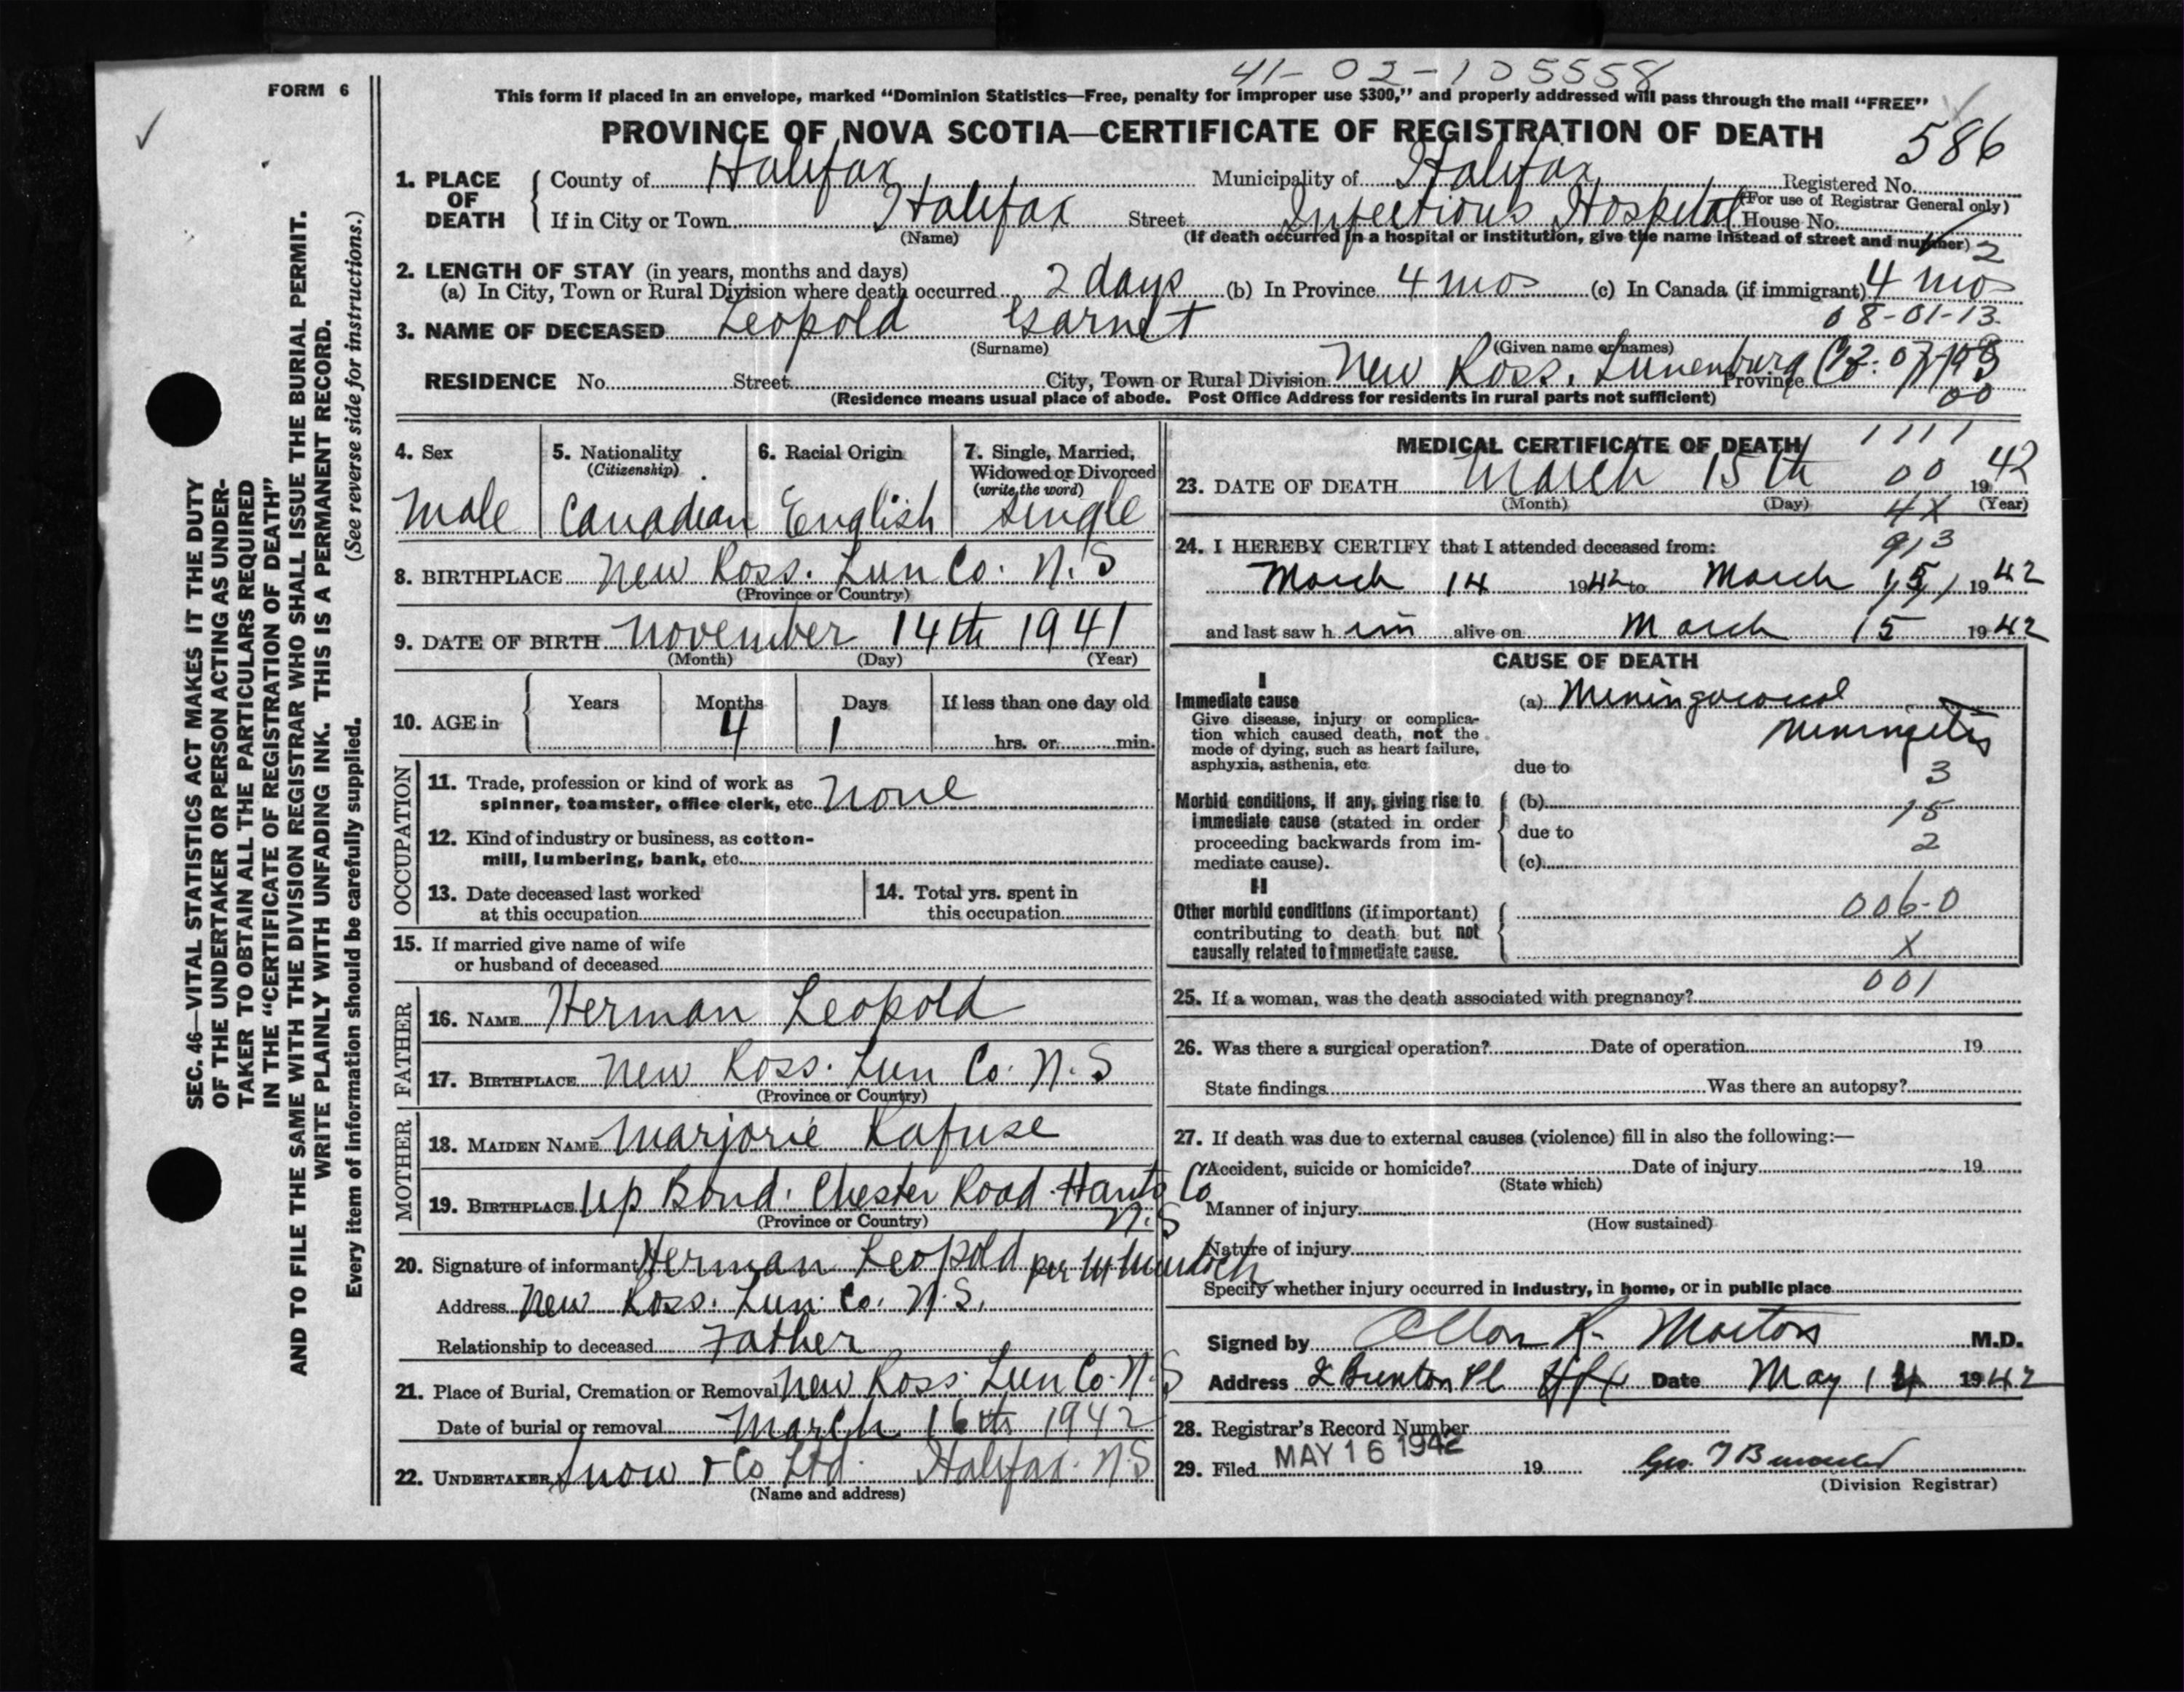 41-02-105558
FORM 6
This form if placed in an envelope, marked “Dominion Statistics—Free, penalty for improper use $300,” and properly addressed will pass through the mail “FREE”
PROVINCE OF NOVA SCOTIA—CERTIFICATE OF REGISTRATION OF DEATH
586
1. PLACE OF DEATH
County of Halifax Municipality of Halifax Registered No.
(For use of Registrar General only)
If in City or Town Halifax Street Infectious Hospital House No.
(Name) (If death occurred in a hospital or institution, give the name instead of street and number) 2
2. LENGTH OF STAY (in years, months and days)
(a) In City, Town or Rural Division where death occurred 2 days (b) In Province 4 mos (c) In Canada (if immigrant) 4 mos
08-01-13
3. NAME OF DECEASED Leopold Garnet
(Surname) (Given name or names)
RESIDENCE No. Street City, Town or Rural Division New Ross. Lunenburg Co Province
00
(Residence means usual place of abode. Post Office Address for residents in rural parts not sufficient)
4. Sex
Male
5. Nationality
(Citizenship)
Canadian
6. Racial Origin
English
7. Single, Married,
Widowed or Divorced
(write the word)
Single
8. BIRTHPLACE New Ross. Lun Co. N.S
(Province or Country)
9. DATE OF BIRTH November 14th 1941
(Month) (Day) (Year)
10. AGE in
Years Months Days If less than one day old
4 1 hrs. or min.
OCCUPATION
11. Trade, profession or kind of work as
spinner, teamster, office clerk, etc. None
12. Kind of industry or business, as cotton-
mill, lumbering, bank, etc.
13. Date deceased last worked
at this occupation
14. Total yrs. spent in
this occupation
15. If married give name of wife
or husband of deceased
FATHER
16. NAME Herman Leopold
17. BIRTHPLACE New Ross. Lun Co. N.S
(Province or Country)
MOTHER
18. MAIDEN NAME Marjorie Rafuse
19. BIRTHPLACE Up Bond. Chester Road. Hants Co
(Province or Country) N.S
20. Signature of informant Herman Leopold per W Murdoch
Address New Ross. Lun. Co. N.S.
Relationship to deceased Father
21. Place of Burial, Cremation or Removal New Ross. Lun Co. N.S
Date of burial or removal March 16th 1942
22. UNDERTAKER Snow & Co Ltd. Halifax. N.S
(Name and address)
MEDICAL CERTIFICATE OF DEATH 1111
23. DATE OF DEATH March 15th 00 1942
(Month) (Day) (Year)
4X
24. I HEREBY CERTIFY that I attended deceased from:
913
March 14 1942 to March 15 1942
and last saw h im alive on March 15 1942
CAUSE OF DEATH
I
Immediate cause
Give disease, injury or complica-
tion which caused death, not the
mode of dying, such as heart failure,
asphyxia, asthenia, etc.
(a) Meningococcal
Meningitis
due to
3
Morbid conditions, if any, giving rise to
immediate cause (stated in order
proceeding backwards from im-
mediate cause).
(b)
15
due to
2
(c)
II
Other morbid conditions (if important)
contributing to death but not
causally related to immediate cause.
006-0
X
001
25. If a woman, was the death associated with pregnancy?
26. Was there a surgical operation? Date of operation 19
State findings Was there an autopsy?
27. If death was due to external causes (violence) fill in also the following:—
Accident, suicide or homicide? Date of injury 19
(State which)
Manner of injury
(How sustained)
Nature of injury
Specify whether injury occurred in industry, in home, or in public place
Signed by Allan R. Morton M.D.
Address 2 Brenton Pl Hfx Date May 14 1942
28. Registrar's Record Number
29. Filed MAY 16 1942 19
(Division Registrar)
SEC. 46—VITAL STATISTICS ACT MAKES IT THE DUTY
OF THE UNDERTAKER OR PERSON ACTING AS UNDER-
TAKER TO OBTAIN ALL THE PARTICULARS REQUIRED
IN THE “CERTIFICATE OF REGISTRATION OF DEATH”
AND TO FILE THE SAME WITH THE DIVISION REGISTRAR WHO SHALL ISSUE THE BURIAL PERMIT.
WRITE PLAINLY WITH UNFADING INK. THIS IS A PERMANENT RECORD.
Every item of information should be carefully supplied. (See reverse side for instructions.)